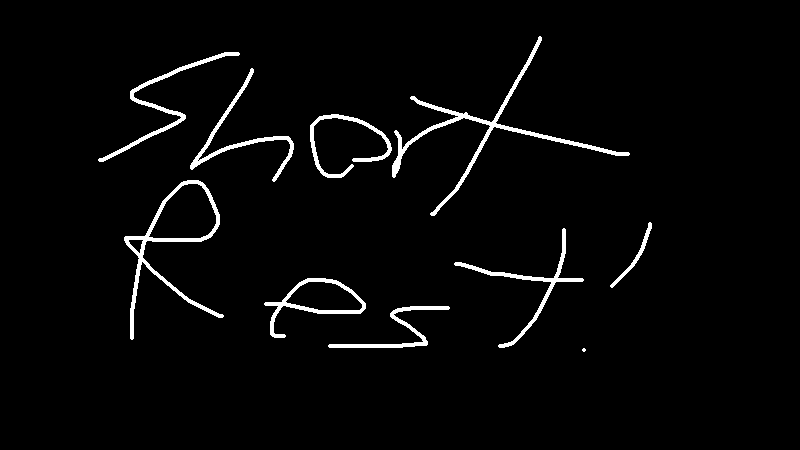 Short
Rest!